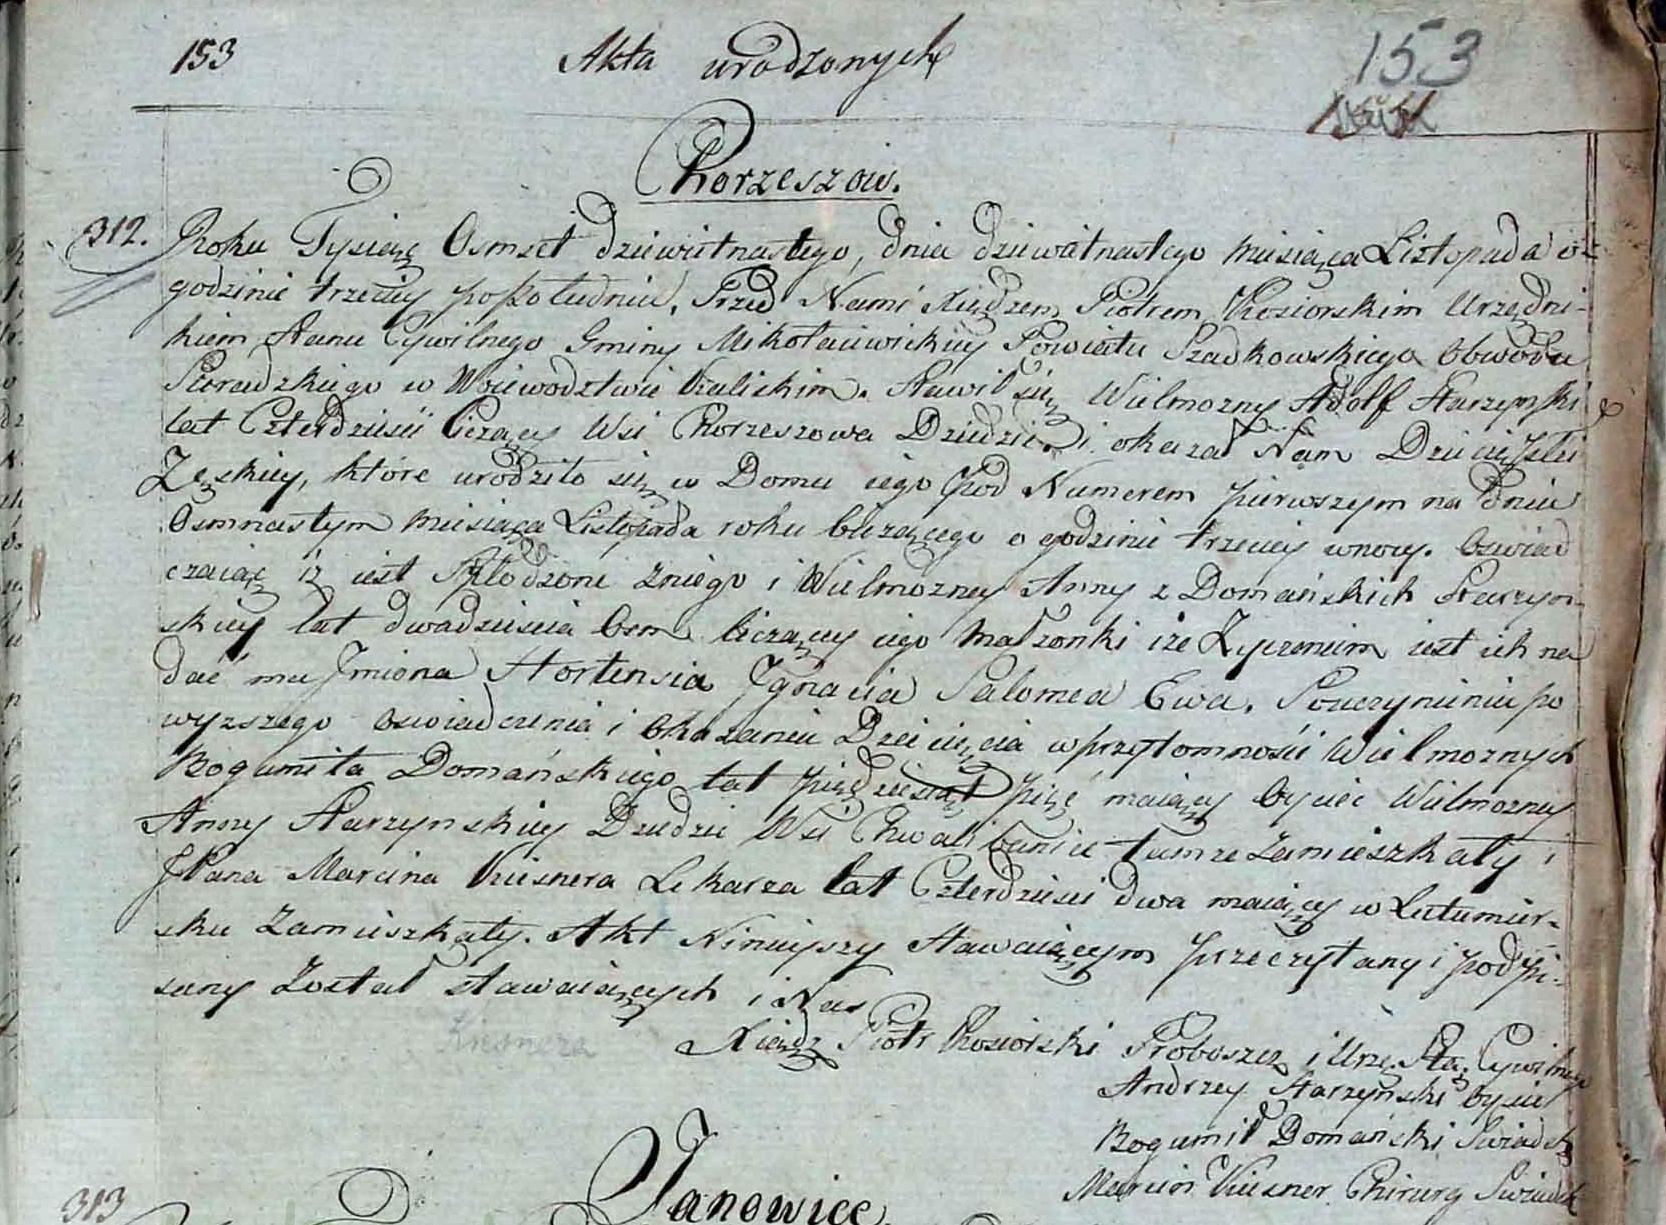 153 Akta urodzonych 153
Chorzeszow.
312. Roku Tysiąc Osmset dziewiętnastego, dnia dziewiętnastego Miesiąca Listopada o
godzinie trzeciey popołudniu, Przed Nami Xiędzem Piotrem Kosiorskim Urzędni-
kiem Stanu Cywilnego Gminy Mikołaiewickiey Powiatu Szadkowskiego Obwodu
Sieradzkiego w Woiewodztwie Kaliskim. Stawił się Wielmozny Adolf Starzynski
lat Czterdziesci liczący Wsi Chorzeszowa Dziedzic i okazał Nam Dziecię Płci
Zęskiey, które urodziło się w Domu iego pod Numerem pierwszym na dniu
Osmnastym Miesiąca Listopada roku bieżącego o godzinie trzeciey wnocy. Oswiad
czaiąc iz iest Spłodzone zniego i Wielmozney Anny z Domańskich Starzyn-
skiey lat dwadziescia Osm liczącey iego Małzonki i ze Zyczeniem iest ich na
dać mu Jmiona Hortensia Jgnacia Salomea Ewa. Pouczynieniu po
wyzszego oswiadczenia i Okazaniu Dziecięcia w przytomności Wielmoznych
Bogumiła Domańskiego lat piędziesiąt pięć maiący Oyciec Wielmozney
Anny Starzynskiey Dziedzic Wsi Chwalibouic tamze Zamieszkały i
JPana Marcina Kiesnera Lekarza lat Czterdziesci dwa maiący w Lutumier-
sku Zamieszkały. Akt Ninieyszy Stawaiącym przeczytany i podpi-
sany Został stawaiących i Nas
Kiesnera
Xiądz Piotr Kosiorski Proboszcz i Urzę. Sta. Cywilnego
Andrzey Starzyński Oyciec
Bogumił Domański Swiadek
Marcin Kiesner Chirurg Swiadek
313 Janowice